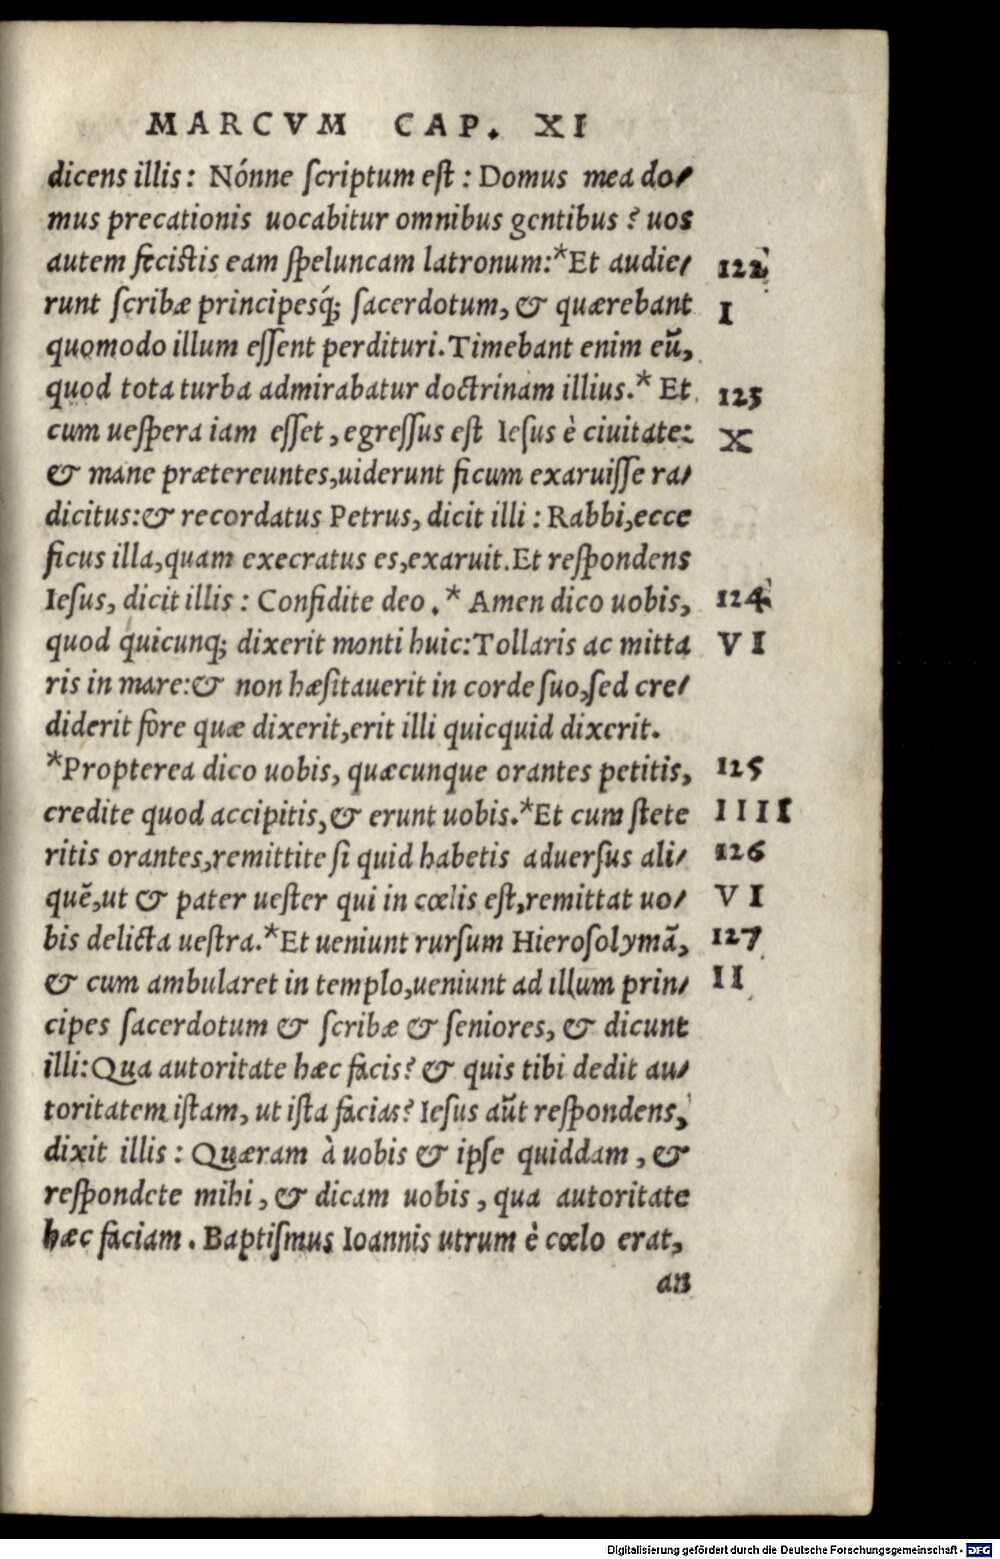 MARCVM CAP. XI
dicens illis: Nónne ſcriptum eſt: Domus mea do⸗
mus precationis uocabitur omnibus gentibus? uos
autem feciſtis eam ſpeluncam latronum:*Et audie⸗ 122
runt ſcribæ principesq́; ſacerdotum, & quærebant I
quomodo illum eſſent perdituri. Timebant enim eũ,
quod tota turba admirabatur doctrinam illius.* Et 123
cum ueſpera iam eſſet, egreſſus eſt Ieſus è ciuitate: X
& mane prætereuntes, uiderunt ficum exaruiſſe ra⸗
dicitus: & recordatus Petrus, dicit illi: Rabbi, ecce
ficus illa, quam execratus es, exaruit. Et reſpondens
Ieſus, dicit illis: Confidite deo.* Amen dico uobis, 124
quod quicunq; dixerit monti huic: Tollaris ac mitta VI
ris in mare: & non hæſitauerit in corde ſuo, ſed cre⸗
diderit fore quæ dixerit, erit illi quicquid dixerit.
*Propterea dico uobis, quæcunque orantes petitis, 125
credite quod accipitis, & erunt uobis.*Et cum ſtete IIII
ritis orantes, remittite ſi quid habetis aduerſus ali⸗ 126
quẽ, ut & pater ueſter qui in cœlis eſt, remittat uo⸗ VI
bis delicta ueſtra.*Et ueniunt rurſum Hieroſolymã, 127
& cum ambularet in templo, ueniunt ad illum prin⸗ II
cipes ſacerdotum & ſcribæ & ſeniores, & dicunt
illi: Qua autoritate hæc facis? & quis tibi dedit au⸗
toritatem iſtam, ut iſta facias? Ieſus aũt reſpondens,
dixit illis: Quæram à uobis & ipſe quiddam, &
reſpondete mihi, & dicam uobis, qua autoritate
hæc faciam. Baptiſmus Ioannis utrum è cœlo erat,
an
Digitalisierung gefördert durch die Deutsche Forschungsgemeinschaft - DFG